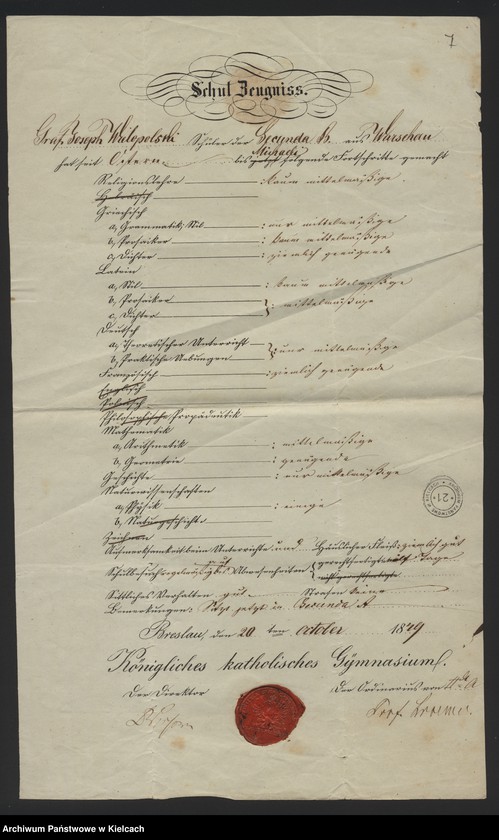 7
Schul Zeugniss.
Graf Joseph Wielopolski Schüler der Secunda B. aus Warschau
hat seit Ostern bis Michaeli folgende Fortschritte gemacht
Religionslehre : kaum mittelmäßige.
Hebräisch
Griechisch
a, Grammatik; Stil : nur mittelmäßige
b, Prosaiker : kaum mittelmäßige
c, Dichter : ziemlich genügende
Latein
a, Stil : kaum mittelmäßige
b, Prosaiker
c, Dichter } : mittelmäßige
Deutsch
a, Theoretischer Unterricht
b, Praktische Uebungen } : nur mittelmäßige
Französisch : ziemlich genügende
Englisch
Polnisch
Philosophische Propädeutik
Mathematik
a, Arithmetik : mittelmäßige
b, Geometrie : genügende
Geschichte : nur mittelmäßige
Naturwissenschaften
a, Physik : einige
b, Naturgeschichte
Zeichnen
Aufmerksamkeit beim Unterrichte und Häuslicher Fleiß: ziemlich gut
Schulbesuch: regelmäßig Abwesenheiten { gerechtfertigte Tage
nicht gerechtfertigte
Sittliches Verhalten gut Strafen keine
Bemerkungen: Sitzt jetzt in Secunda A
Breslau den 20 ten October 1849
Königliches katholisches Gymnasium.
Der Direktor Der Ordinarius von IIda A
Prof.
21
Archiwum Państwowe w Kielcach